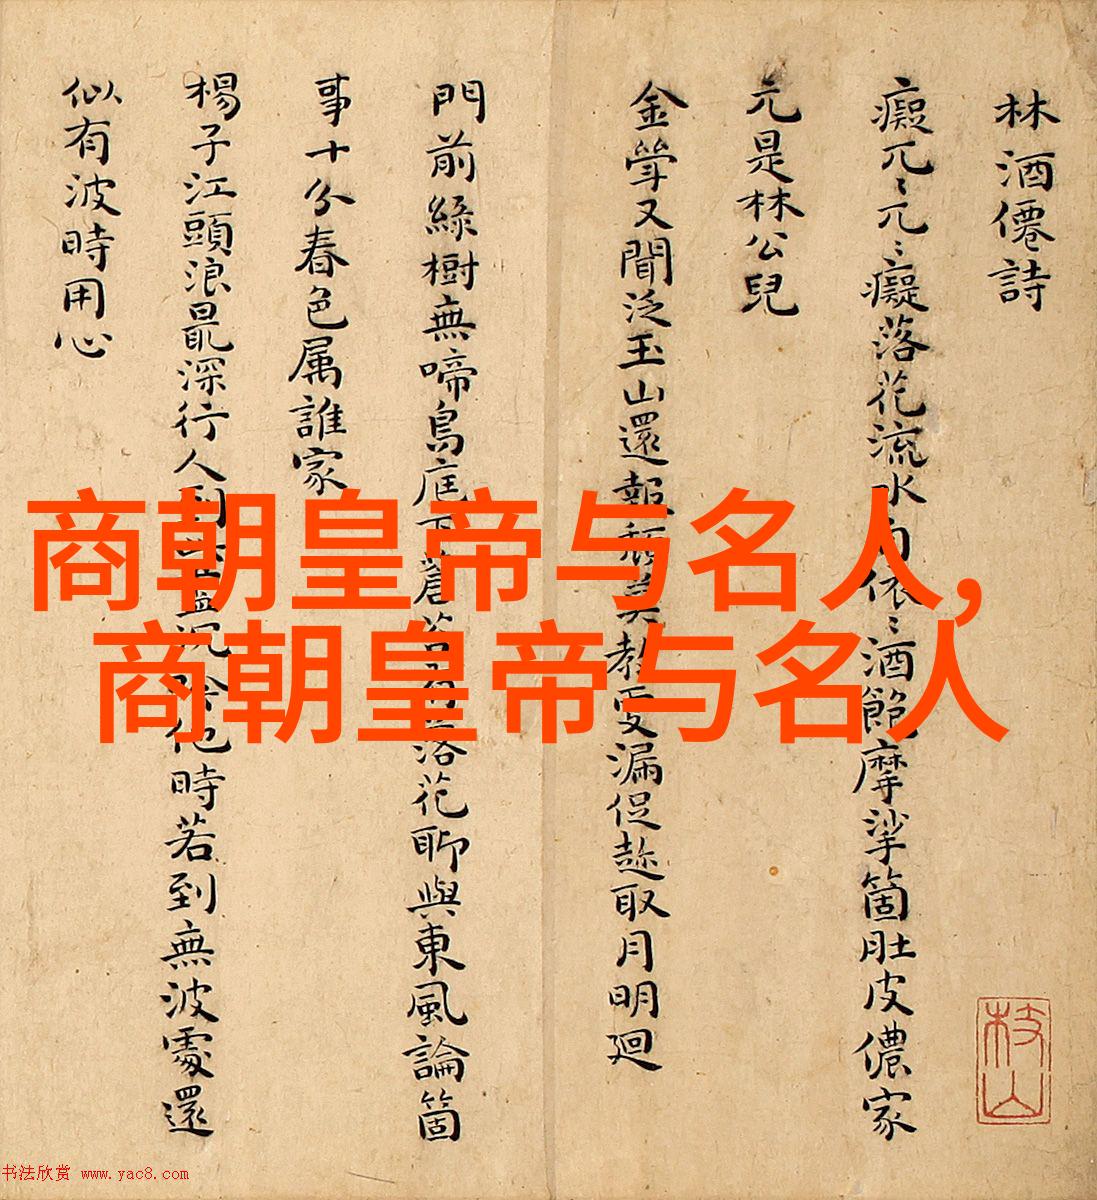 林酒僊詩
癡兀〻兀〻癡落花流水
依〻酒飽摩挲箇肚皮儂家
元是林公兒
金斝又聞泛玉山還報頹莫教更漏促趂取月明廻
門前綠樹無啼鳥庭下蒼苔有落花聊與東風論箇
事十分春色属誰家
楊子江頭浪最深行人到
他時若到無波處還
似有波時用心
枝山
商朝皇帝与名人,
商朝皇帝与名人
书法欣赏 www.yac8.com